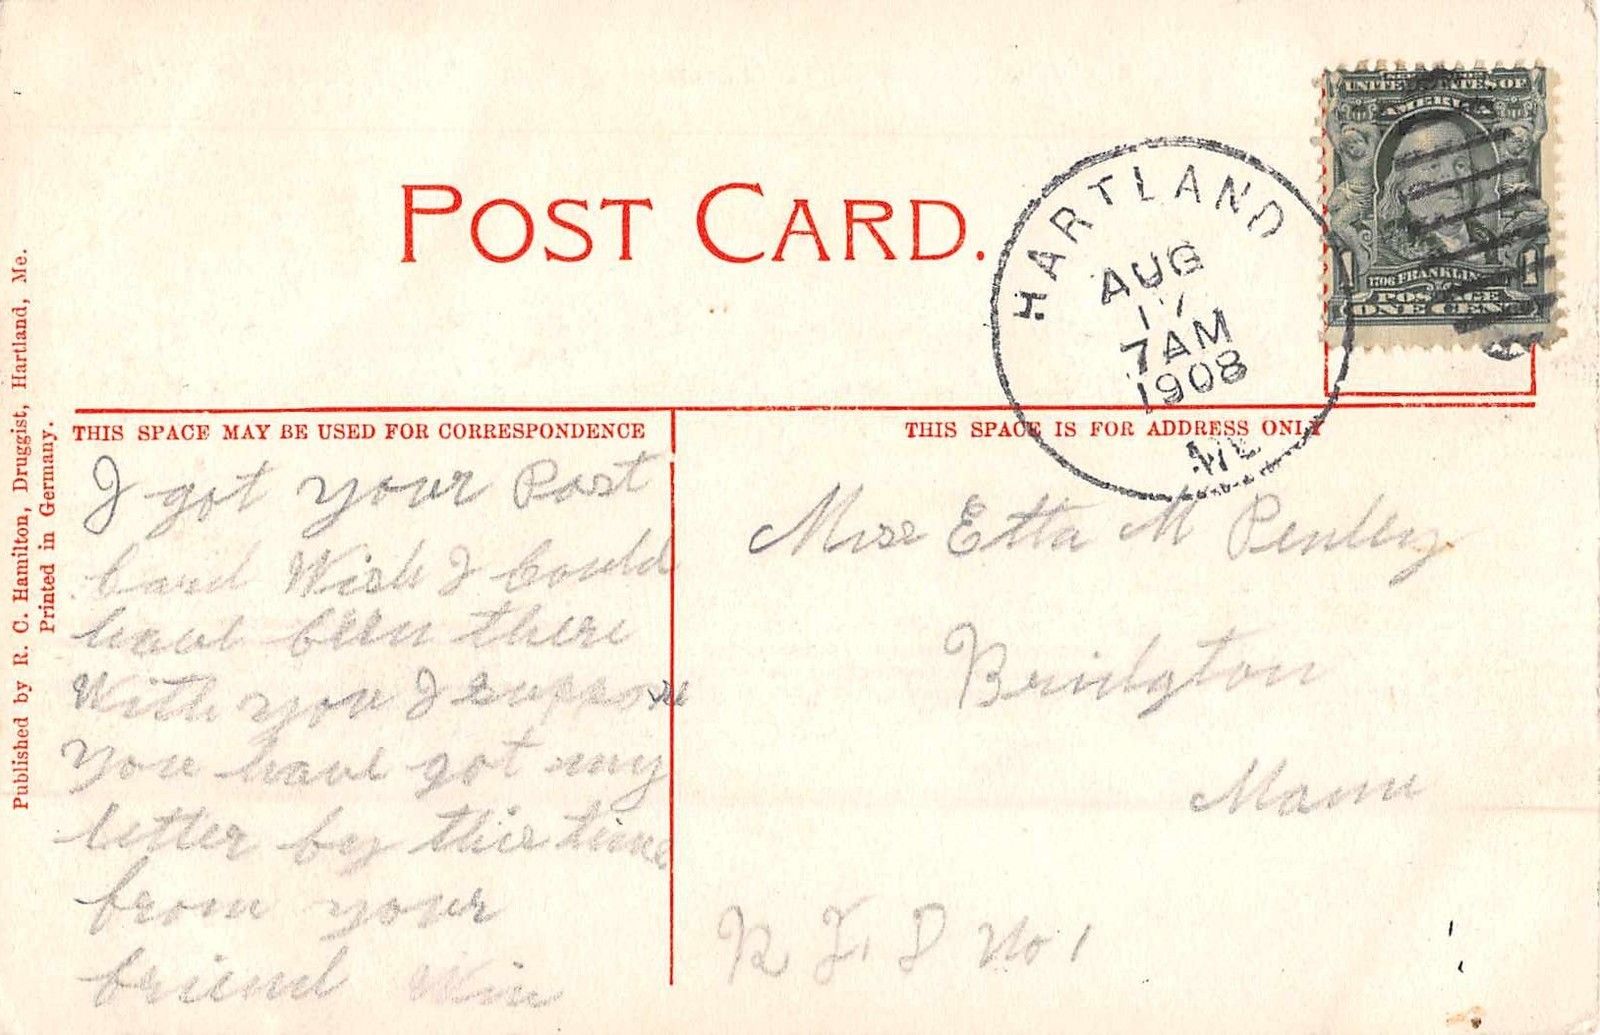 POST CARD.
HARTLAND
AUG
17
7AM
1908
ME
UNITED STATES OF
AMERICA
1 1
1706 FRANKLIN
POSTAGE
ONE CENT
THIS SPACE MAY BE USED FOR CORRESPONDENCE
I got your Post
Card Wish I Could
have been there
With you I suppose
you have got my
letter by this time
from your
friend Win
THIS SPACE IS FOR ADDRESS ONLY
Miss Etta M Penley
Bridgton
Maine
R F D No 1
Published by R. C. Hamilton, Druggist, Hartland, Me.
Printed in Germany.